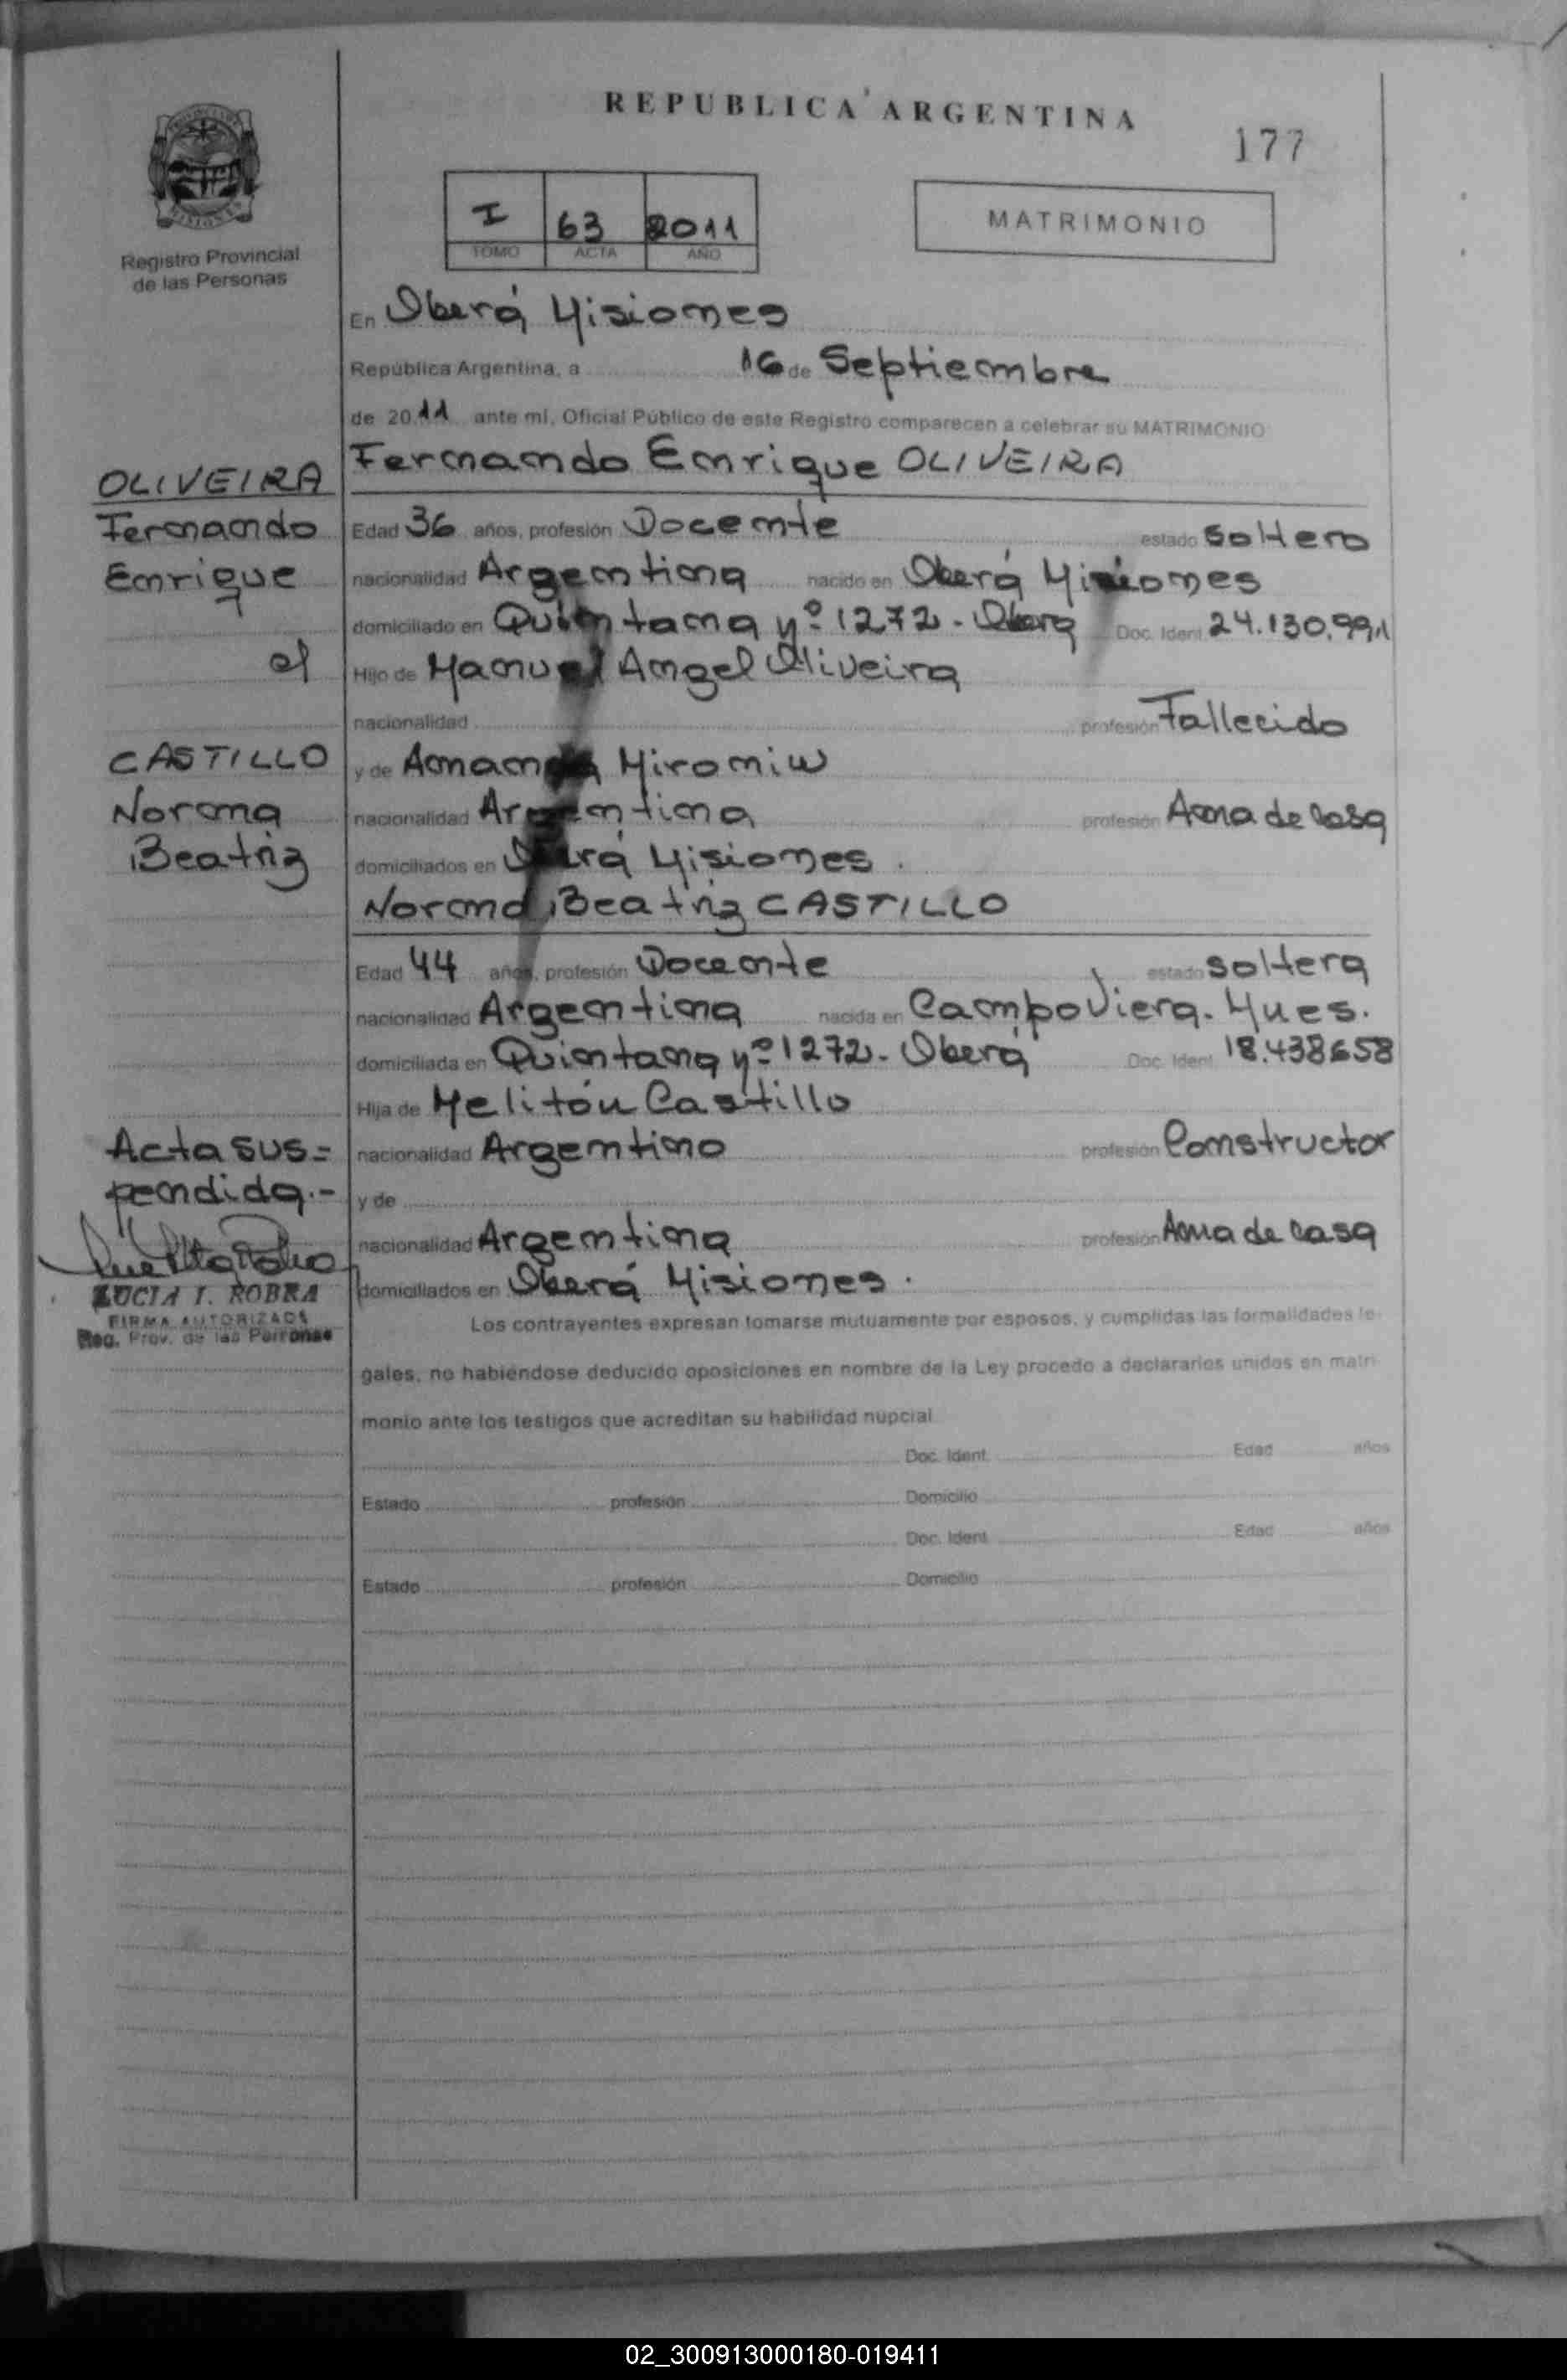 REPUBLICA ARGENTINA
177
I 63 2011
TOMO ACTA AÑO
MATRIMONIO
Registro Provincial
de las Personas
En Oberá Misiones
República Argentina, a 16 de Septiembre
de 2011 ante mí, Oficial Público de este Registro comparecen a celebrar su MATRIMONIO
Fernando Enrique OLIVEIRA
OLIVEIRA
Fernando
Enrique
c/
CASTILLO
Norma
Beatriz
Edad 36 años, profesión Docente estado Soltero
nacionalidad Argentina nacido en Oberá Misiones
domiciliado en Quintana Nº 1272. Oberá Doc. Ident. 24.130.991
Hijo de Manuel Angel Oliveira
nacionalidad profesión Fallecido
y de Amanda Mironiw
nacionalidad Argentina profesión Ama de Casa
domiciliados en Oberá Misiones.
Norma Beatriz CASTILLO
Edad 44 años, profesión Docente estado Soltera
nacionalidad Argentina nacida en Campo Viera. Mnes.
domiciliada en Quintana Nº 1272. Oberá Doc. Ident. 18.438658
Hija de Melitón Castillo
nacionalidad Argentino profesión Constructor
y de
nacionalidad Argentina profesión Ama de Casa
domiciliados en Oberá Misiones.
Acta sus=
pendida.-
LUCIA I. ROBRA
FIRMA AUTORIZADA
Reg. Prov. de las Personas
Los contrayentes expresan tomarse mutuamente por esposos, y cumplidas las formalidades le-
gales, no habiéndose deducido oposiciones en nombre de la Ley procedo a declararlos unidos en matri-
monio ante los testigos que acreditan su habilidad nupcial
Doc. Ident. Edad años
Estado profesión Domicilio
Doc. Ident. Edad años
Estado profesión Domicilio
02_300913000180-019411